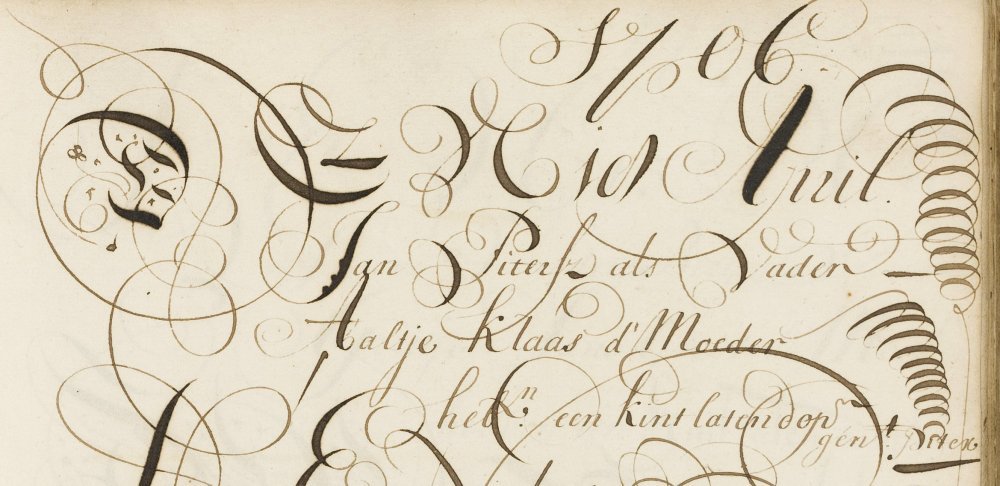 1706
DEN 18 April.
Jan Pitersz als Vader
Aaltje Klaas d' Moeder
hebn. een kint laten dopn
gent. Piter